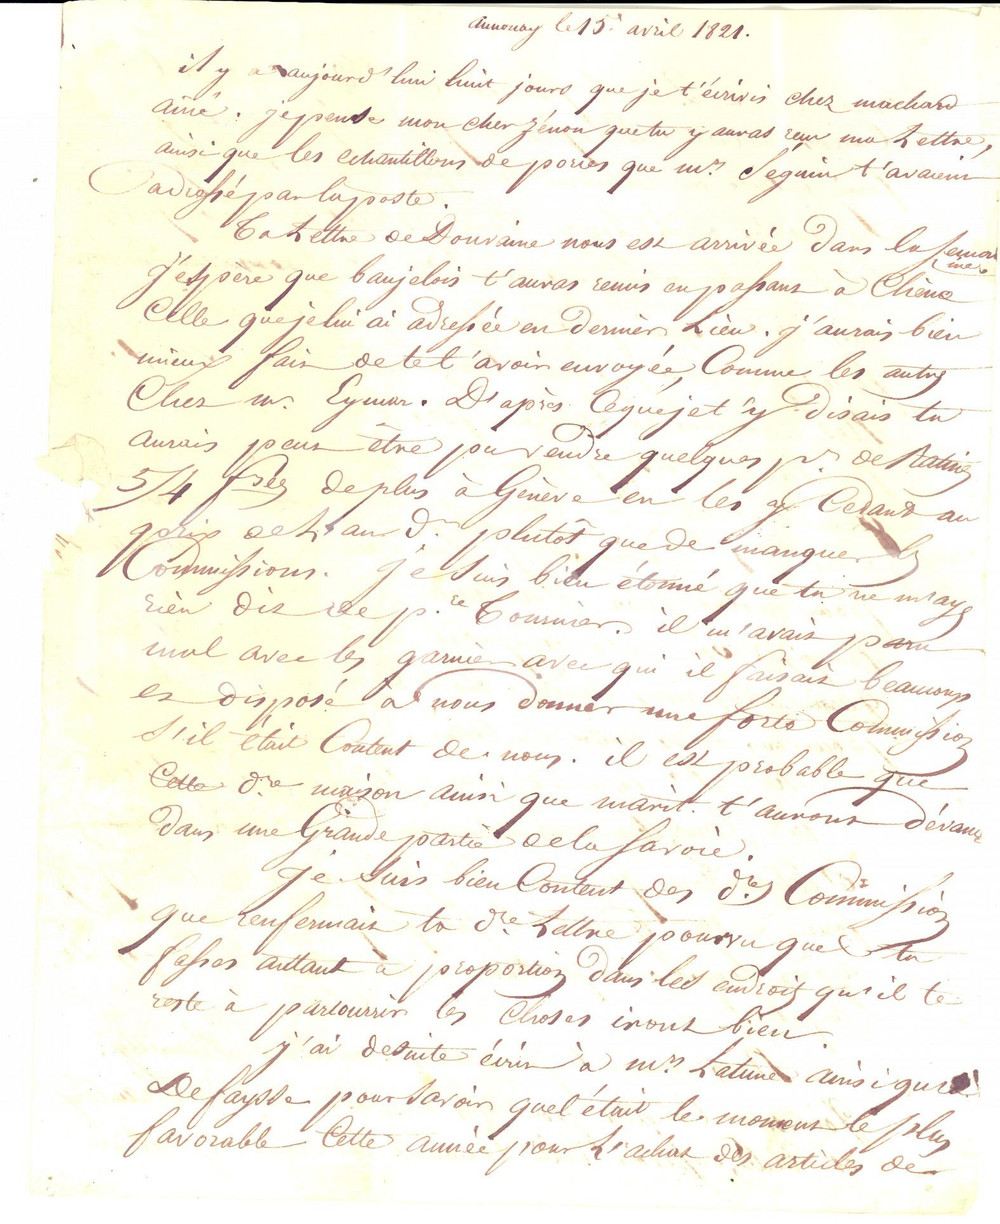 annonay le 15 avril 1821.
il y a aujourd'hui huit jours que je t'écrivis chez machard
ainé. je pense mon cher Zénon que tu y auras reçu ma Lettre,
ainsi que les echantillons de que mrs. Séguin t'avaient
adressé par la poste.
Ta Lettre de Douvaine nous est arrivée dans la semai
ne
j'espère que baujelois t'auras remis en passant à Chêne
Celle que je lui ai adressée en dernier Lieu. j'aurais bien
mieux fait de te l'avoir envoyée, Comme les autres
Chez mr. Eymar. D'après Ce que je t'y disais tu
aurais peut être pu vendre quelques ps. de Ratines
5/4 de plus à Genève en les y Cedant au
prix de L'an dr. plutôt que de manquer les
Commissions. je suis bien étonné que tu ne m'ayes
rien dit de pre. Tournier. il m'avait paru
mal avec les garnier avec qui il faisait beaucoup
et disposé à nous donner une forte Commission
s'il était Content de nous. il est probable que
Cette dre. maison ainsi que t'auront dévancé
dans une Grande partie de la Savoie.
je suis bien Content des dres. Commissions
que renfermait ta dre. Lettre pourvu que tu
fasses autant à proportion dans les endroits qu'il te
reste à parcourir les Choses iront bien.
j'ai de suite écrit à mrs. Latune ainsi qu'à
Defaysse pour savoir quel était le moment le plus
favorable Cette année pour L'achat des articles de